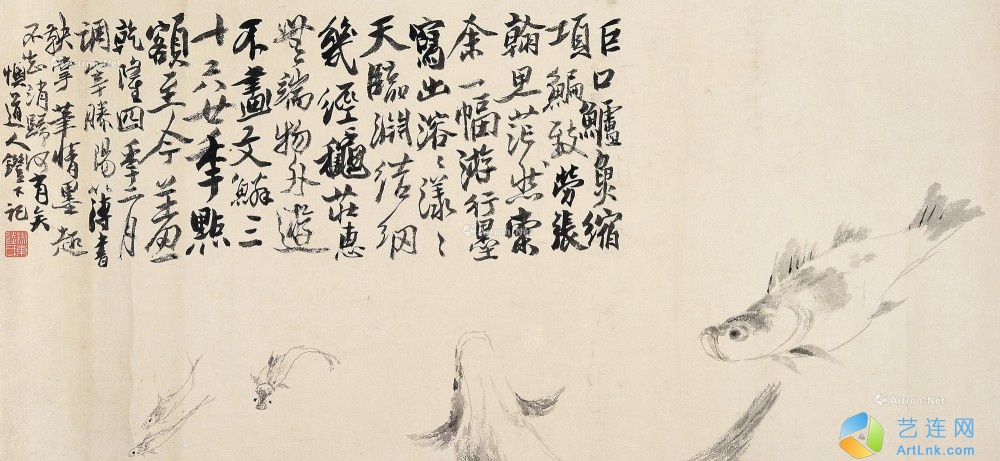 巨口鱸魚縮
項鯿致勞張
翰思茫然索
余一幅游行墨
寫出溶〻漾〻
天臨淵結網
幾經龝莊惠
無端物外遊
不畫文鱗三
十六廿季點
額至今羞
乾隆四季二月
調宰滕陽簿書
鞅掌筆情墨趣
不忘消歸何有矣
懊道人鐙下記
Artron.Net
艺连网
ArtLnk.com